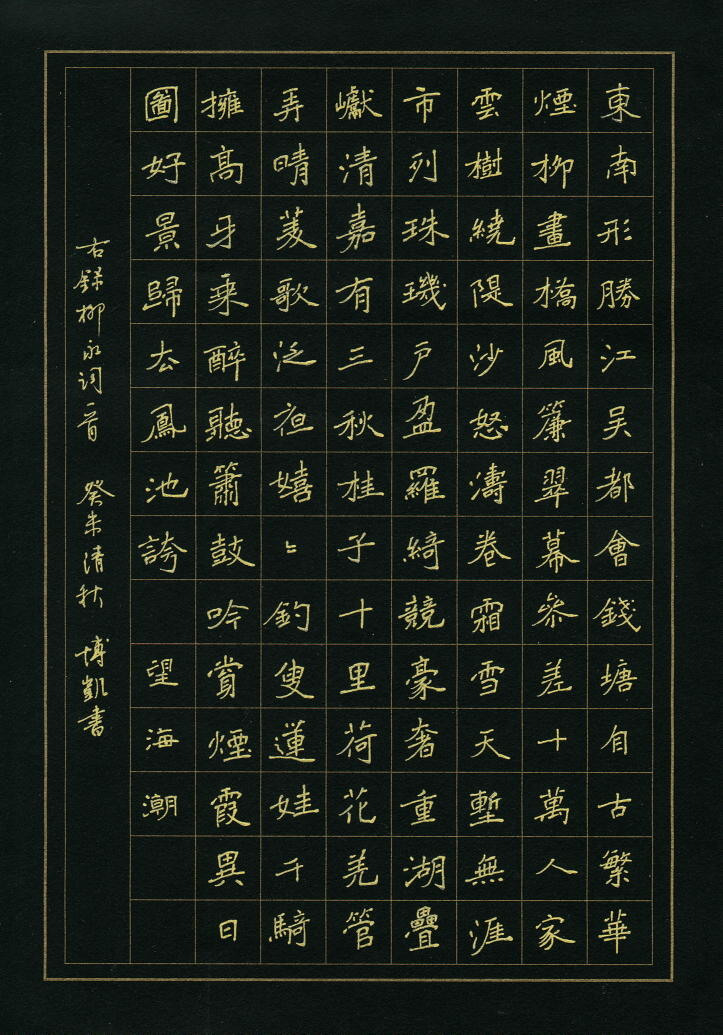 東南形勝江吴都會錢塘自古繁華
煙柳畫橋風簾翠幕參差十萬人家
雲樹繞隄沙怒濤卷霜雪天塹無涯
市列珠璣户盈羅綺競豪奢重湖疊
巘清嘉有三秋桂子十里荷花羌管
弄晴菱歌泛夜嬉〻釣叟蓮娃千騎
擁高牙乗醉聽簫鼓吟賞煙霞異日
圖好景歸去鳳池誇 望海潮
右録柳永詞一首 癸未清秋 博凱書